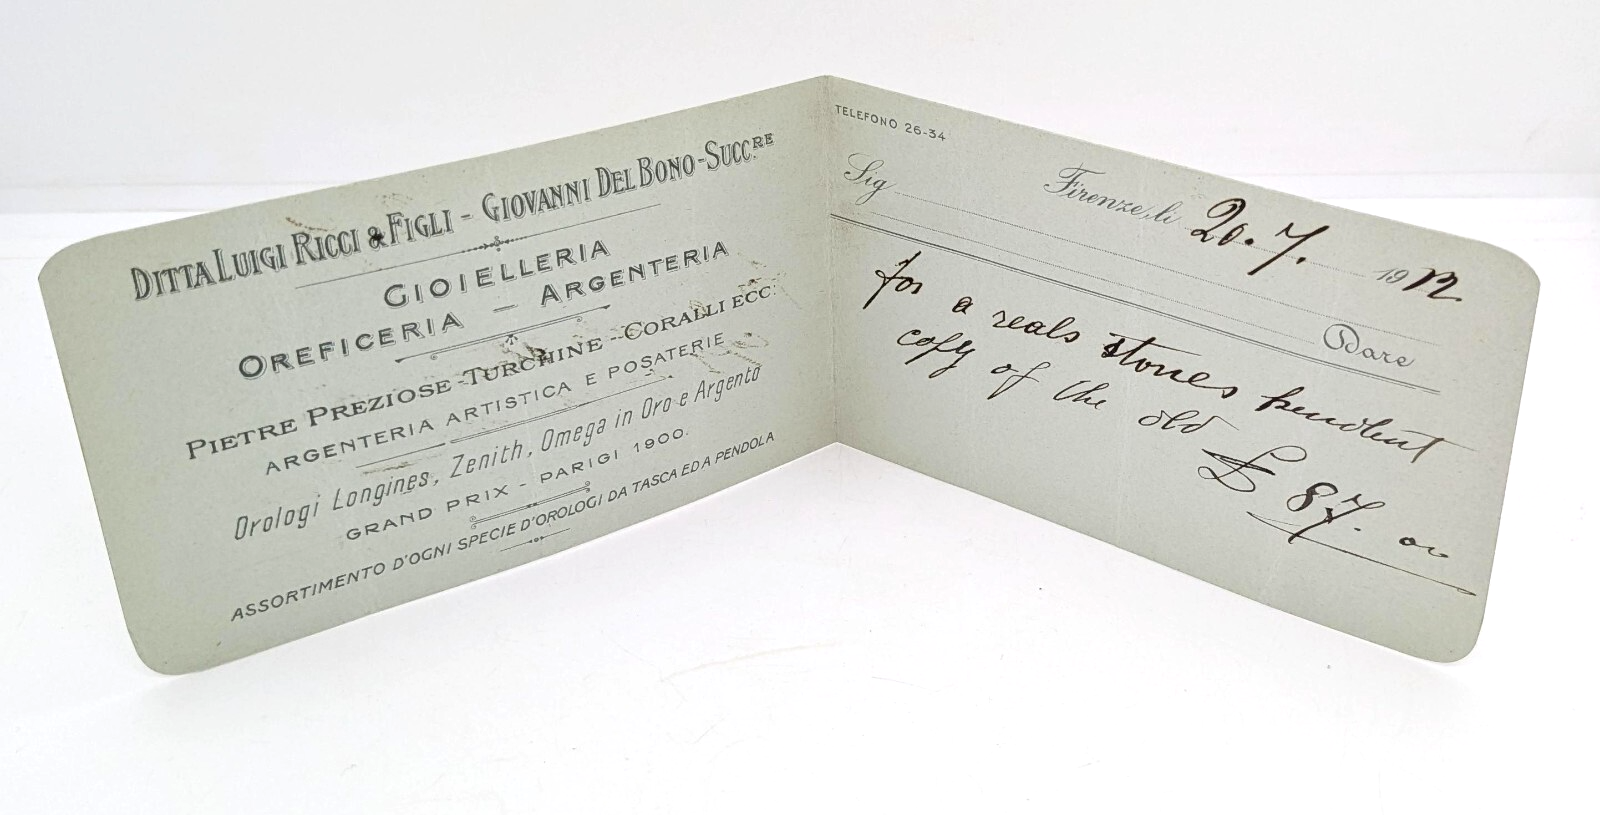 DITTA LUIGI RICCI & FIGLI - GIOVANNI DEL BONO - SUCC.RE
GIOIELLERIA
OREFICERIA — ARGENTERIA
PIETRE PREZIOSE - TURCHINE - CORALLI ECC.
ARGENTERIA ARTISTICA E POSATERIE
Orologi Longines, Zenith, Omega in Oro e Argento
GRAND PRIX - PARIGI 1900.
ASSORTIMENTO D'OGNI SPECIE D'OROLOGI DA TASCA ED A PENDOLA
TELEFONO 26-34
Firenze, li 20.7. 1912
Sig
Dare
for a reals stones pendent
copy of the old
£ 87.00